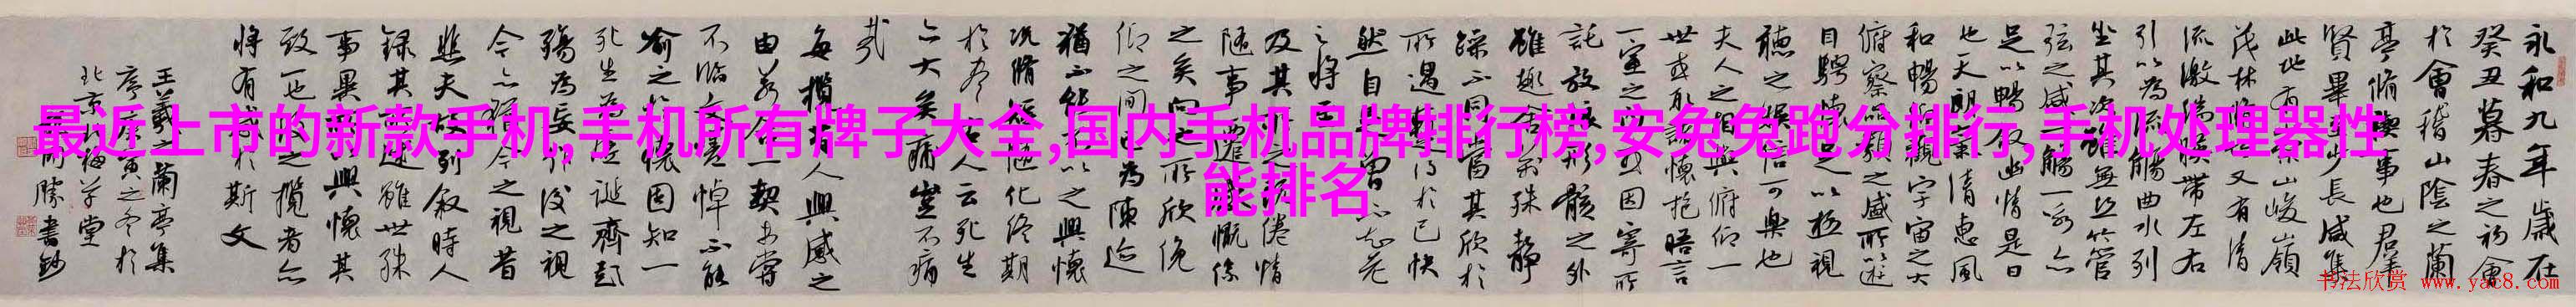 永和九年歲在
癸丑暮春之初會
於會稽山陰之蘭
亭脩禊事也羣
賢畢至少長咸集
此地有崇山峻嶺
茂林脩又有清
流激湍暎帶左右
引以為流觴曲水列
坐其次雖無絲竹管
弦之盛一觴一詠亦
足以暢敘幽情是日
也天朗氣清惠風
和暢仰觀宇宙之大
俯察品類之盛所以遊
目騁懷足以極視
聽之娛信可樂也
夫人之相與俯仰一
世或取諸懷抱晤言
一室之內或因寄所
託放浪形骸之外
雖趣舍萬殊靜
躁不同當其欣於
所遇暫得於己快
然自足曾不知老
之將至
及其所之既倦情
隨事遷感慨係
之矣向之所欣俛
仰之間已為陳迹
猶不能不以之興懷
況脩短隨化終期
於盡古人云死生
亦大矣痛豈不痛
哉
每攬昔人興感之
由若合一契未嘗
不臨文嗟悼不能
喻之於懷固知一
死生為虛誕齊彭
殤為妄作後之視
今亦猶今之視昔
悲夫故列敘時人
錄其所述雖世殊
事異所以興懷其
致一也後之攬者亦
將有感於斯文
王羲之蘭亭集
序庚寅之冬於
北京草堂
勝書鈔
最近上市的新款手机,手机所有牌子大全,国内手机品牌排行榜,安兔兔跑分排行,手机处理器性
能排名
书法欣赏 www.yac8.com